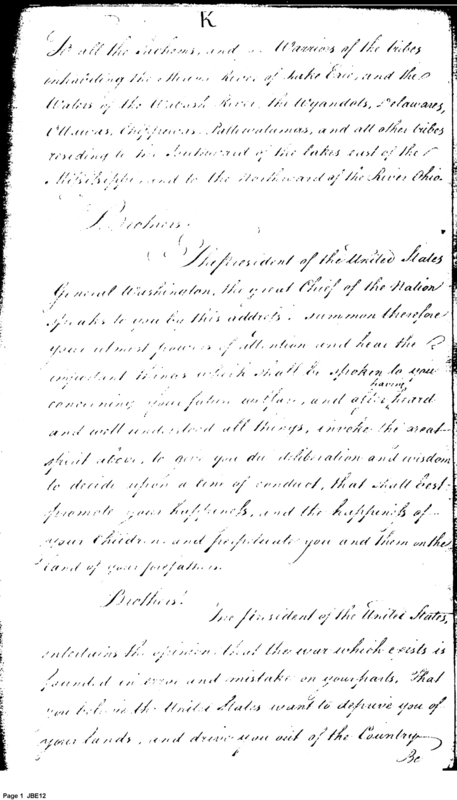 K
To all the Sachems, and Warriors of the tribes
inhabiting the Miami River of Lake Erie, and the
Waters of the Wabash River, the Wyandots, Delawares,
Ottawas, Chippewas, Pattewatamas, and all other tribes
residing to the Southward of the lakes east of the
Mississippi, and to the Northward of the River Ohio.
Brothers.
The President of the United States
General Washington, the great Chief of the Nation
speaks to you by this address. Summon therefore
your utmost powers of attention and hear the
important things which shall be spoken to you
having
concerning your future welfare, and after heard
and well understood all things, invoke the great
spirit above, to give you due deliberation and wisdom
to decide upon a line of conduct, that shall best
promote your happiness, and the happiness of
your Children and perpetuate you and them on the
land of your forefathers.
Brothers!
The President of the United States,
entertains the opinion that the war which exists is
founded in error and mistake on your parts. That
you believe the United States want to deprive you of
your lands, and drive you out of the Country
Be
Page 1 JBE12